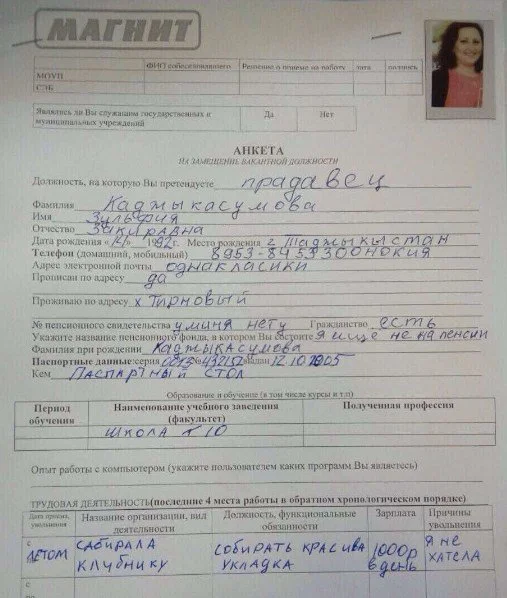 МАГНИТ
ФИО собеседовавшего Решение о приеме на работу дата подпись
МОУП
СЭБ
Являлись ли Вы служащим государственных и муниципальных учреждений Да Нет
АНКЕТА
НА ЗАМЕЩЕНИЕ ВАКАНТНОЙ ДОЛЖНОСТИ
Должность, на которую Вы претендуете прадавец
Фамилия Каджыкасумова
Имя Зульфия
Отчество Закиравна
Дата рождения «14» 1992г. Место рождения г Таджыкыстан
Телефон (домашний, мобильный) 8953-8453300нокия
Адрес электронной почты однакласики
Прописан по адресу да
Проживаю по адресу х Тирновый
№ пенсионного свидетельства у миня нету Гражданство есть
Укажите название пенсионного фонда, в котором Вы состоите я ище не на пенсии
Фамилия при рождении Каджыкасумова
Паспортные данные: серия № выдан 12.10
Кем Паспартный стол
Образование и обучение (в том числе курсы и т.п)
Период обучения Наименование учебного заведения (факультет) Полученная профессия
школа 10
Опыт работы с компьютером (укажите пользователем каких программ Вы являетесь)
ТРУДОВАЯ ДЕЯТЕЛЬНОСТЬ(последние 4 места работы в обратном хронологическом порядке)
Дата приема, увольнения Название организации, вид деятельности Должность, функциональные обязанности Зарплата Причины увольнения
с летом сабирала клубнику собирать красива укладка 1000р в день я не хатела
с